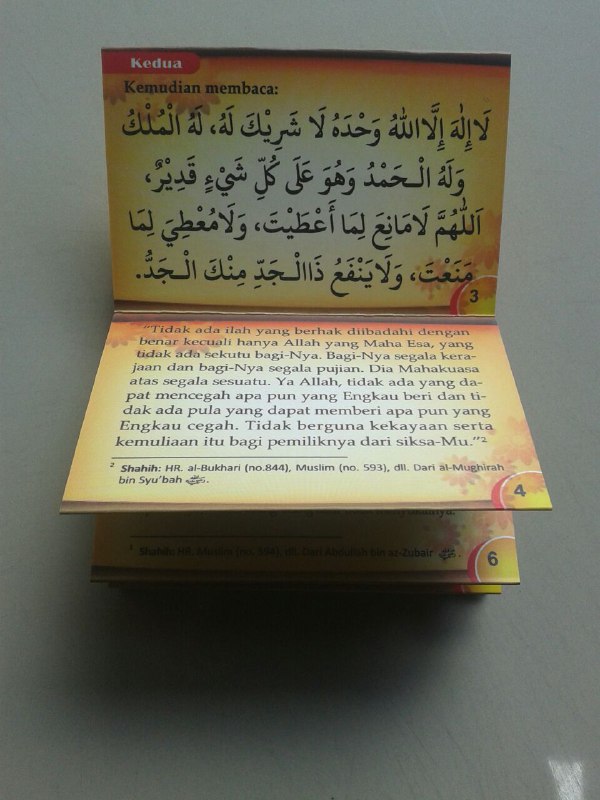 Kedua
Kemudian membaca:
لَا إِلٰهَ إِلَّا اللهُ وَحْدَهُ لَا شَرِيْكَ لَهُ، لَهُ الْمُلْكُ
وَلَهُ الْـحَمْدُ وَهُوَ عَلَى كُلِّ شَيْءٍ قَدِيْرٌ،
اَللّٰهُمَّ لَا مَانِعَ لِمَا أَعْطَيْتَ، وَلَا مُعْطِيَ لِمَا
مَنَعْتَ، وَلَا يَنْفَعُ ذَا الْـجَدِّ مِنْكَ الْـجَدُّ.
3
"Tidak ada ilah yang berhak diibadahi dengan
benar kecuali hanya Allah yang Maha Esa, yang
tidak ada sekutu bagi-Nya. Bagi-Nya segala kera-
jaan dan bagi-Nya segala pujian. Dia Mahakuasa
atas segala sesuatu. Ya Allah, tidak ada yang da-
pat mencegah apa pun yang Engkau beri dan ti-
dak ada pula yang dapat memberi apa pun yang
Engkau cegah. Tidak berguna kekayaan serta
kemuliaan itu bagi pemiliknya dari siksa-Mu."2
2 Shahih: HR. al-Bukhari (no.844), Muslim (no. 593), dll. Dari al-Mughirah
bin Syu'bah .
4
3 Shahih: HR. Muslim (no. 594), dll. Dari Abdullah bin az-Zubair .
6